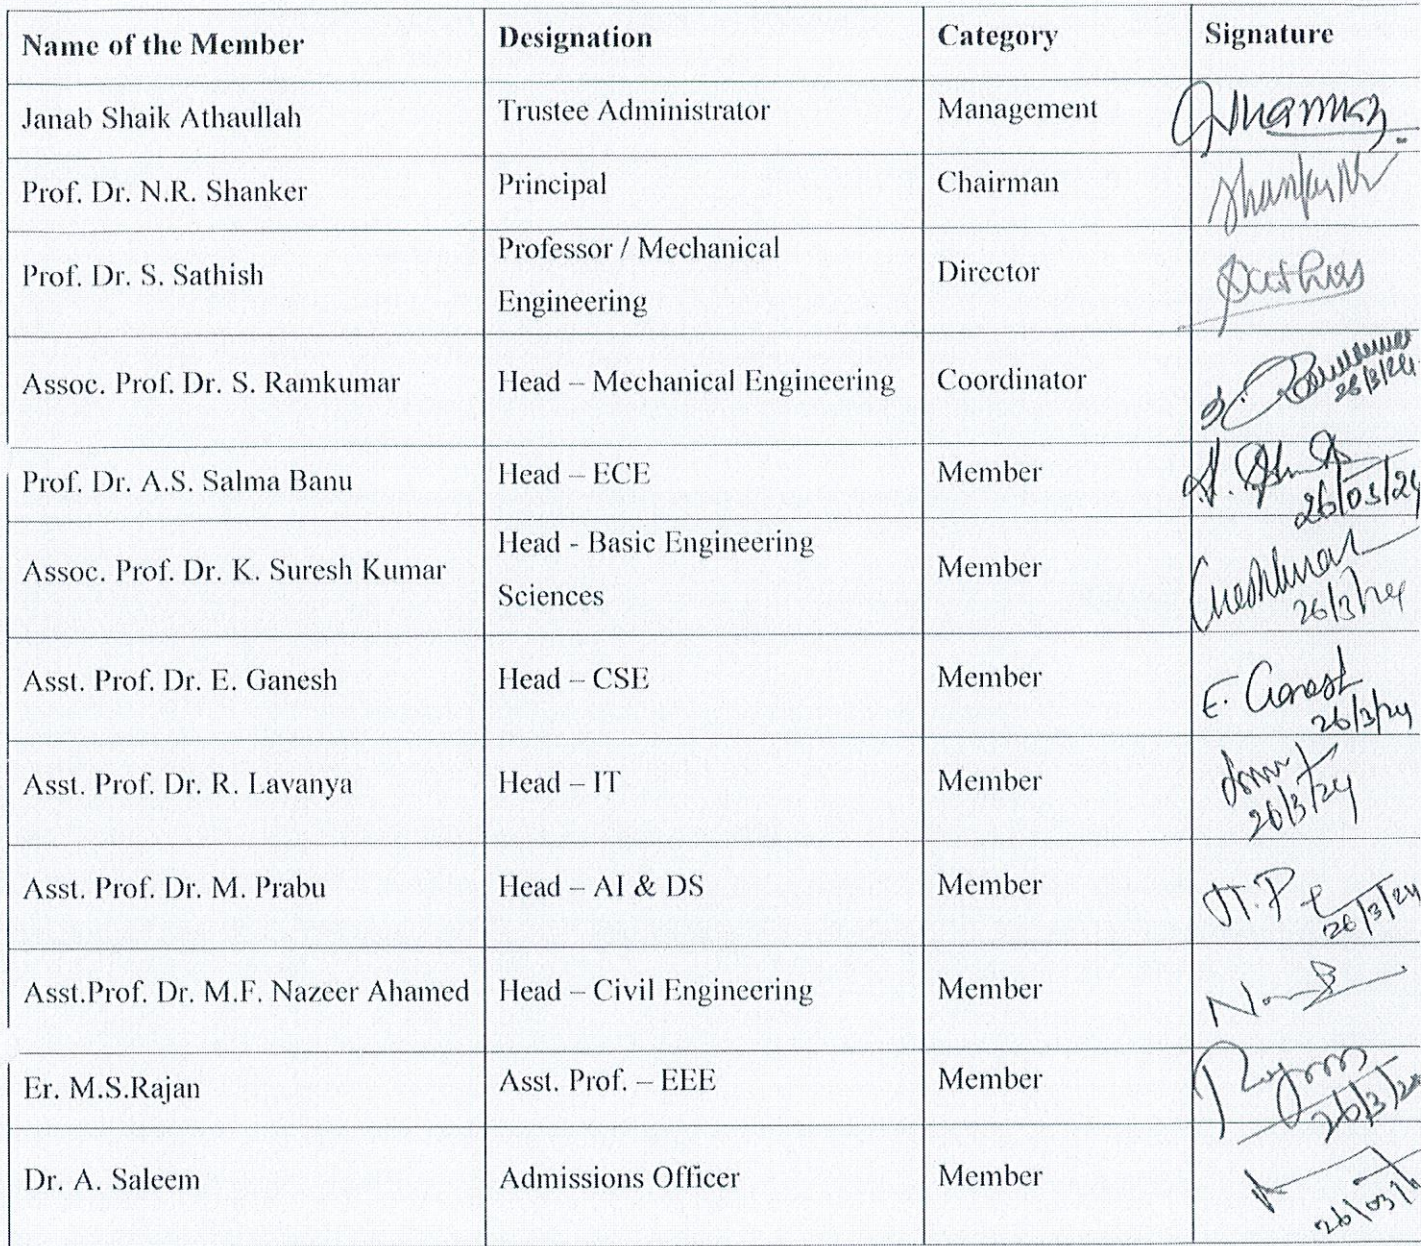 Name of the Member Designation Category Signature
Janab Shaik Athaullah Trustee Administrator Management
Prof. Dr. N.R. Shanker Principal Chairman
Prof. Dr. S. Sathish Professor / Mechanical Director
Engineering
Assoc. Prof. Dr. S. Ramkumar Head – Mechanical Engineering Coordinator
26/3/24
Prof. Dr. A.S. Salma Banu Head – ECE Member
26/03/24
Assoc. Prof. Dr. K. Suresh Kumar Head - Basic Engineering Member
Sciences
26/3/24
Asst. Prof. Dr. E. Ganesh Head – CSE Member E. Ganesh
26/3/24
Asst. Prof. Dr. R. Lavanya Head – IT Member
26/3/24
Asst. Prof. Dr. M. Prabu Head – AI & DS Member
26/3/24
Asst.Prof. Dr. M.F. Nazeer Ahamed Head – Civil Engineering Member
Er. M.S.Rajan Asst. Prof. – EEE Member
26/3/
Dr. A. Saleem Admissions Officer Member
26/03/